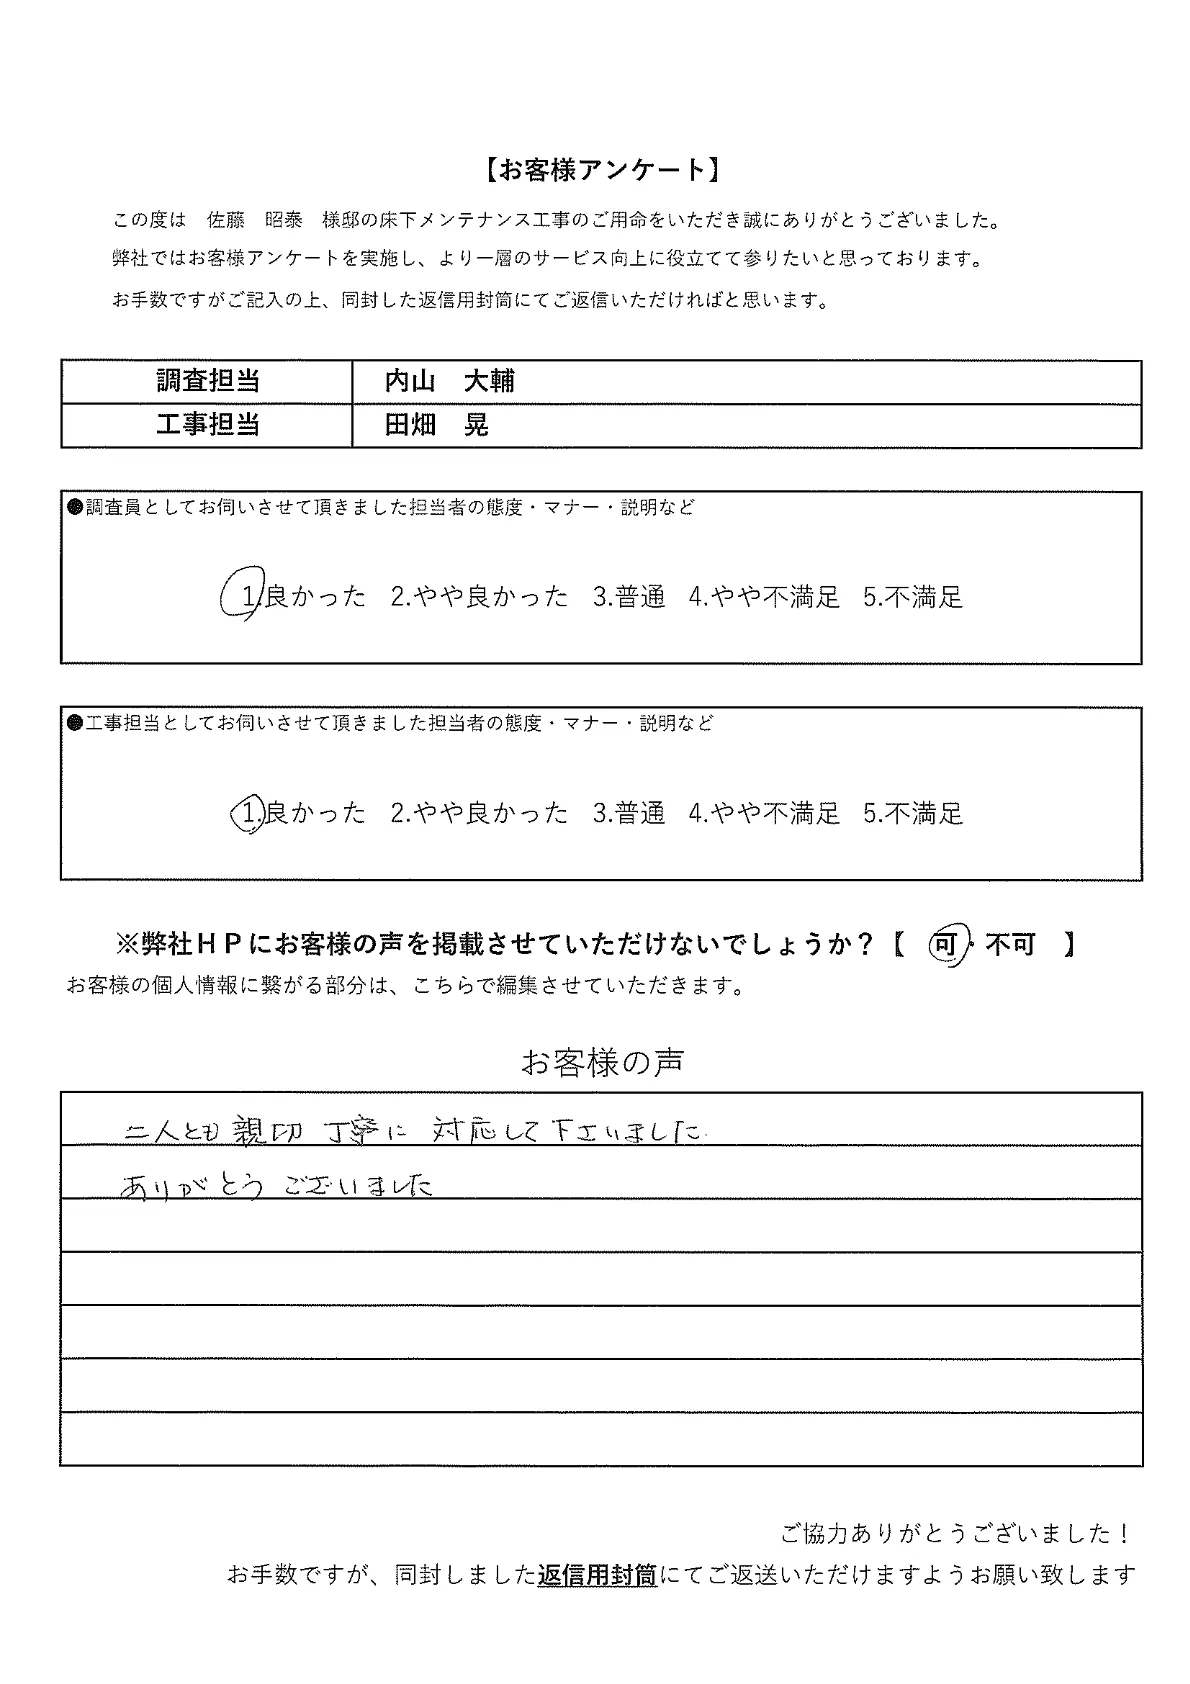 【お客様アンケート】
この度は　佐藤　昭泰　様邸の床下メンテナンス工事のご用命をいただき誠にありがとうございました。
弊社ではお客様アンケートを実施し、より一層のサービス向上に役立てて参りたいと思っております。
お手数ですがご記入の上、同封した返信用封筒にてご返信いただければと思います。
調査担当　内山　大輔
工事担当　田畑　晃
●調査員としてお伺いさせて頂きました担当者の態度・マナー・説明など
1.良かった　2.やや良かった　3.普通　4.やや不満足　5.不満足
●工事担当としてお伺いさせて頂きました担当者の態度・マナー・説明など
1.良かった　2.やや良かった　3.普通　4.やや不満足　5.不満足
※弊社ＨＰにお客様の声を掲載させていただけないでしょうか？【　可・不可　】
お客様の個人情報に繋がる部分は、こちらで編集させていただきます。
お客様の声
二人とも親切 丁寧に 対応して下さいました
ありがとう ございました
ご協力ありがとうございました！
お手数ですが、同封しました返信用封筒にてご返送いただけますようお願い致します